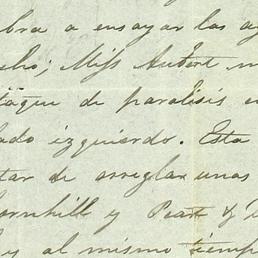 bra a ensayar las a
cho; Miss Aubert
taque de paralisis e
lado izquierdo. Esta
tar de arreglar unas
ornhill y Peart y
y al mismo tiemp